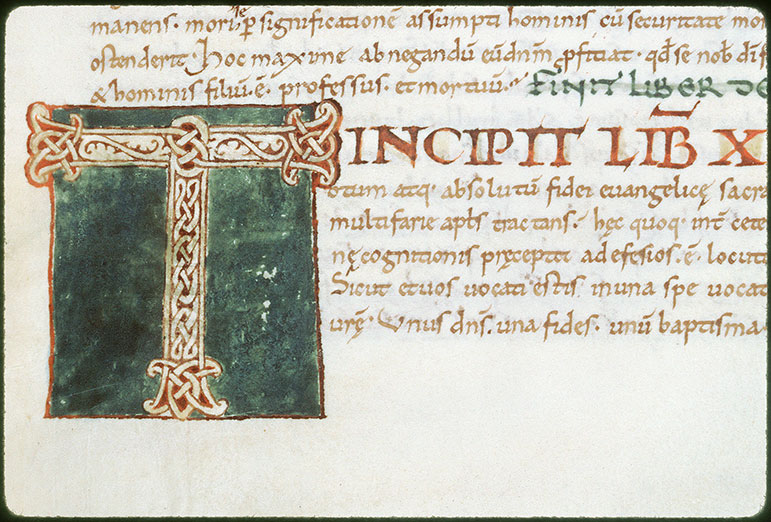 manens. moriẽ p̱ significationẽ assumpti hominis cũ securitate mor
ostenderit. Hoc maxime ab negandũ eũ dnm̃ ꝓfitiat. qđ se nob̃ dñs
& hominis filiũ.ẽ. professus. et mortuũ. FINIT LIBER DE
INCIPIT LIB̃ X
T
otum atq; absolutũ fidei euangelicę sacra
multifarie apłs tractans. hęc quoq; int̃ cete
nę cognitionis pręcepit ad efesios.ẽ. locut
Sicut et uos uocati estis in una spe uocat
urę. Unus dñs. una fides. unũ baptisma